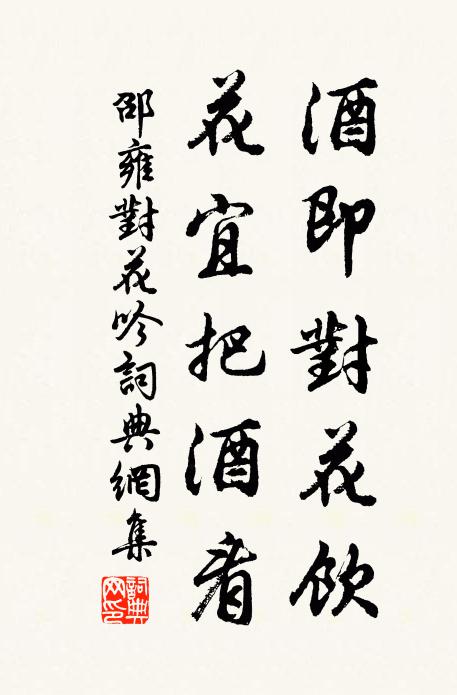 酒即對花飲
花宜把酒看
邵雍對花吟詞典網集
詞典網印